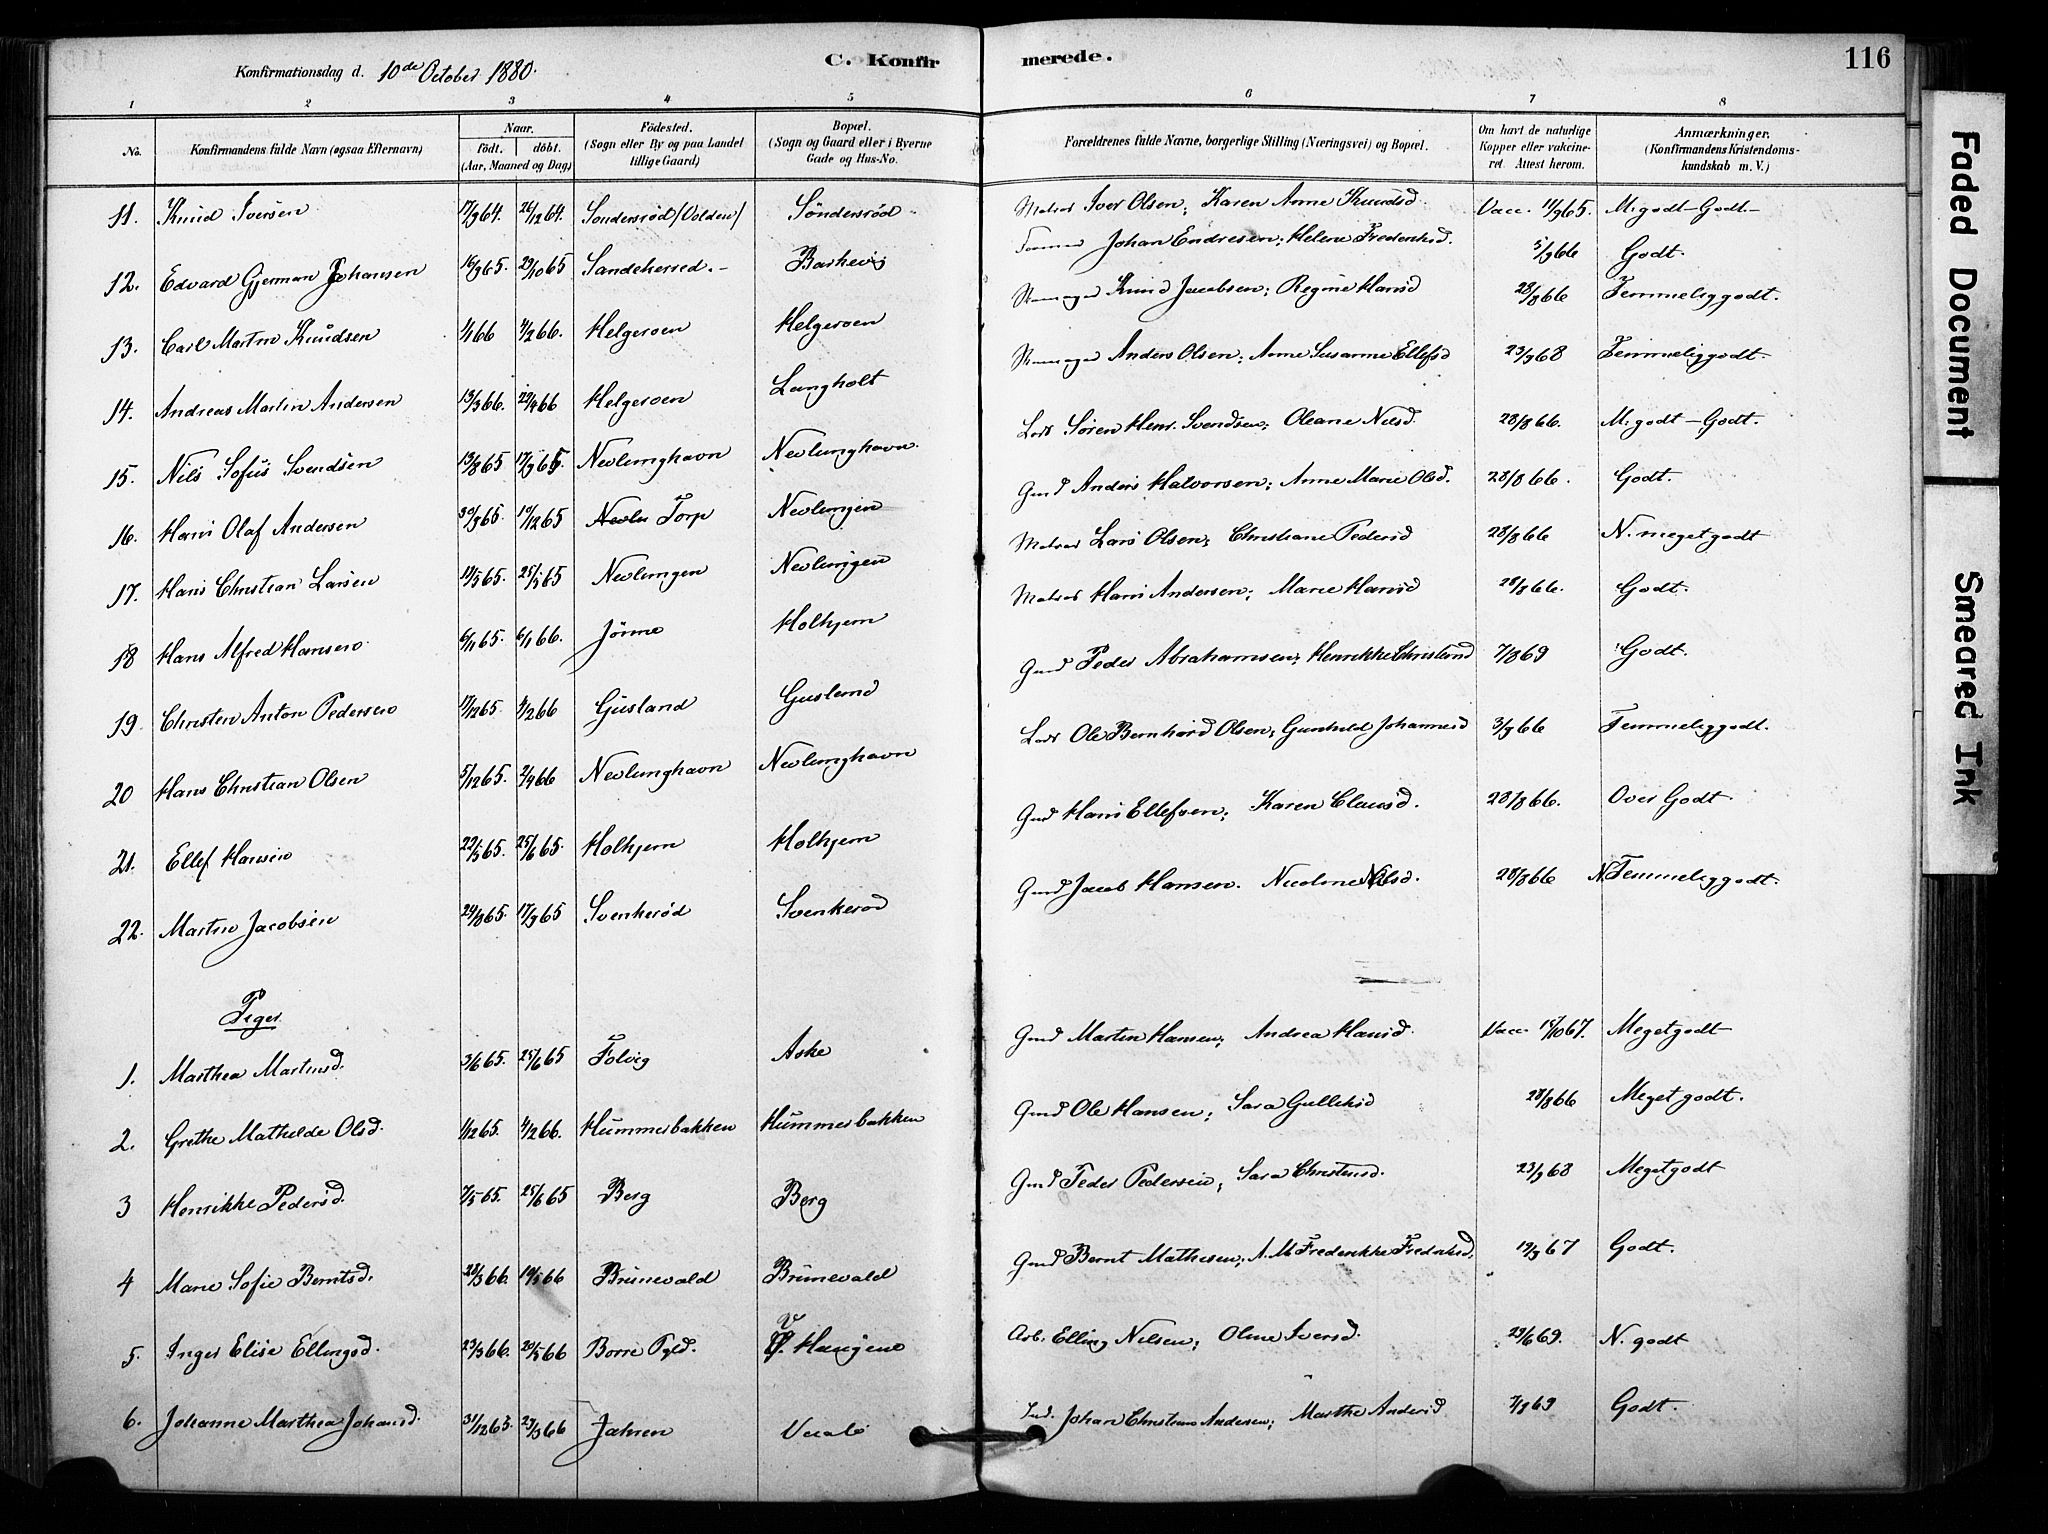 Konfirmationsdag d. 10de October 1880.
C. Konfir
merede.
116
1 2 3 4 5 6 7 8
No. Konfirmandens fulde Navn (ogsaa Efternavn) Naar. født. (Aar, Maaned og Dag) døbt. Födested. (Sogn eller By og paa Landet tillige Gaard) Bopæl. (Sogn og Gaard eller i Byerne Gade og Hus-No. Forældrenes fulde Navne, borgerlige Stilling (Næringsvei) og Bopæl. Om havt de naturlige Kopper eller vakcineret. Attest herom. Anmærkninger. (Konfirmandens Kristendomskundskab m. V.)
11. Knud Iversen 17/9 64. 26/12 64. Söndersröd /Volden/ Söndersröd Matros Iver Olsen; Karen Anne Knudsd. Vacc. 11/9 65. M. godt - Godt.
12. Edvard Gjerman Johansen 16/9 65. 29/10 65 Sandeherred. Barkevig Johan Endresen; Helene Frederiksd. 5/9 66 Godt.
13. Carl Martin Knudsen 1/1 66 4/2 66. Helgeroen Helgeroen Knud Jacobsen; Regine Hansd 28/8 66 Temmelig godt.
14. Andreas Martin Andersen 13/3 66. 29/4 66 Helgeroen Langholt Anders Olsen; Anne Susanne Ellefsd 23/9 68 Temmelig godt.
15. Nils Sofus Svendsen 13/8 65 17/9 65. Nevlunghavn Nevlunghavn. Lods Sören Henr. Svendsen; Oleane Nilsd. 28/8 66. M. godt - Godt.
16. Hans Olaf Andersen 30/9 65. 10/12 65 Nevlu Torp Nevlungen Gmd Anders Halvorsen; Anne Marie Olsd. 28/8 66. Godt.
17. Hans Christian Larsen 11/3 65. 25/5 65 Nevlungen Nevlungen Matros Lars Olsen; Christiane Pedersd 28/8 66 N. meget godt
18 Hans Alfred Hansen 6/11 65. 6/1 66. Jönne Holhjem Matros Hans Andersen; Maren Hansd 28/8 66. Godt.
19. Christen Anton Pedersen 17/12 65. 4/2 66 Gusland Gusland Gmd Peder Abrahamsen; Henrikke Christensd 7/8 69 Godt.
20 Hans Christian Olsen 5/12 65. 2/4 66 Nevlunghavn Nevlunghavn Lods Ole Bernhard Olsen; Gunhild Johannesd 3/9 66 Temmelig godt.
21. Ellef Hansen 22/5 65. 25/6 65. Holhjem Holhjem Gmd Hans Ellefsen; Karen Clausd. 28/8 66. Over Godt.
22. Martin Jacobsen 24/8 65. 17/9 65 Svenkeröd Svenkeröd Gmd Jacob Hansen. Nicoline Nilsd. 28/8 66 N. Temmelig godt.
Piger.
1. Marthea Martinsd. 3/6 65. 25/6 65 Tolvig Aske Gmd Martin Hansen; Andrea Hansd. Vacc. 15/10 67. Meget godt
2. Grethe Mathilde Olsd. 1/12 65. 4/2 66. Hummerbakken Hummerbakken Gmd Ole Hansen; Sara Gulliksd 28/8 66 Meget godt.
3 Henrikke Pedersd. 7/5 65. 25/6 65 Berg Berg Gmd Peder Pedersen; Sara Christensd. 23/9 68 Meget godt
4 Marie Sofie Berntsd. 21/3 66. 10/5 66 Brunevald Brunevald Gmd Bernt Mathisen; A. M. Frederikke Frederiksd. 19/9 67 Godt.
5. Inger Elise Ellingsd. 23/3 66. 20/5 66 Borre Pgld. V. Haugene Arb. Elling Nilsen; Oline Iversd. 29/6 69. N. godt
6. Johanne Marthea Johansd. 31/12 65. 27/3 66 Jahren Vaale Ind. Johan Christian Andersen; Marthe Andersd 7/8 69 Godt.
Faded Document
Smeared Ink